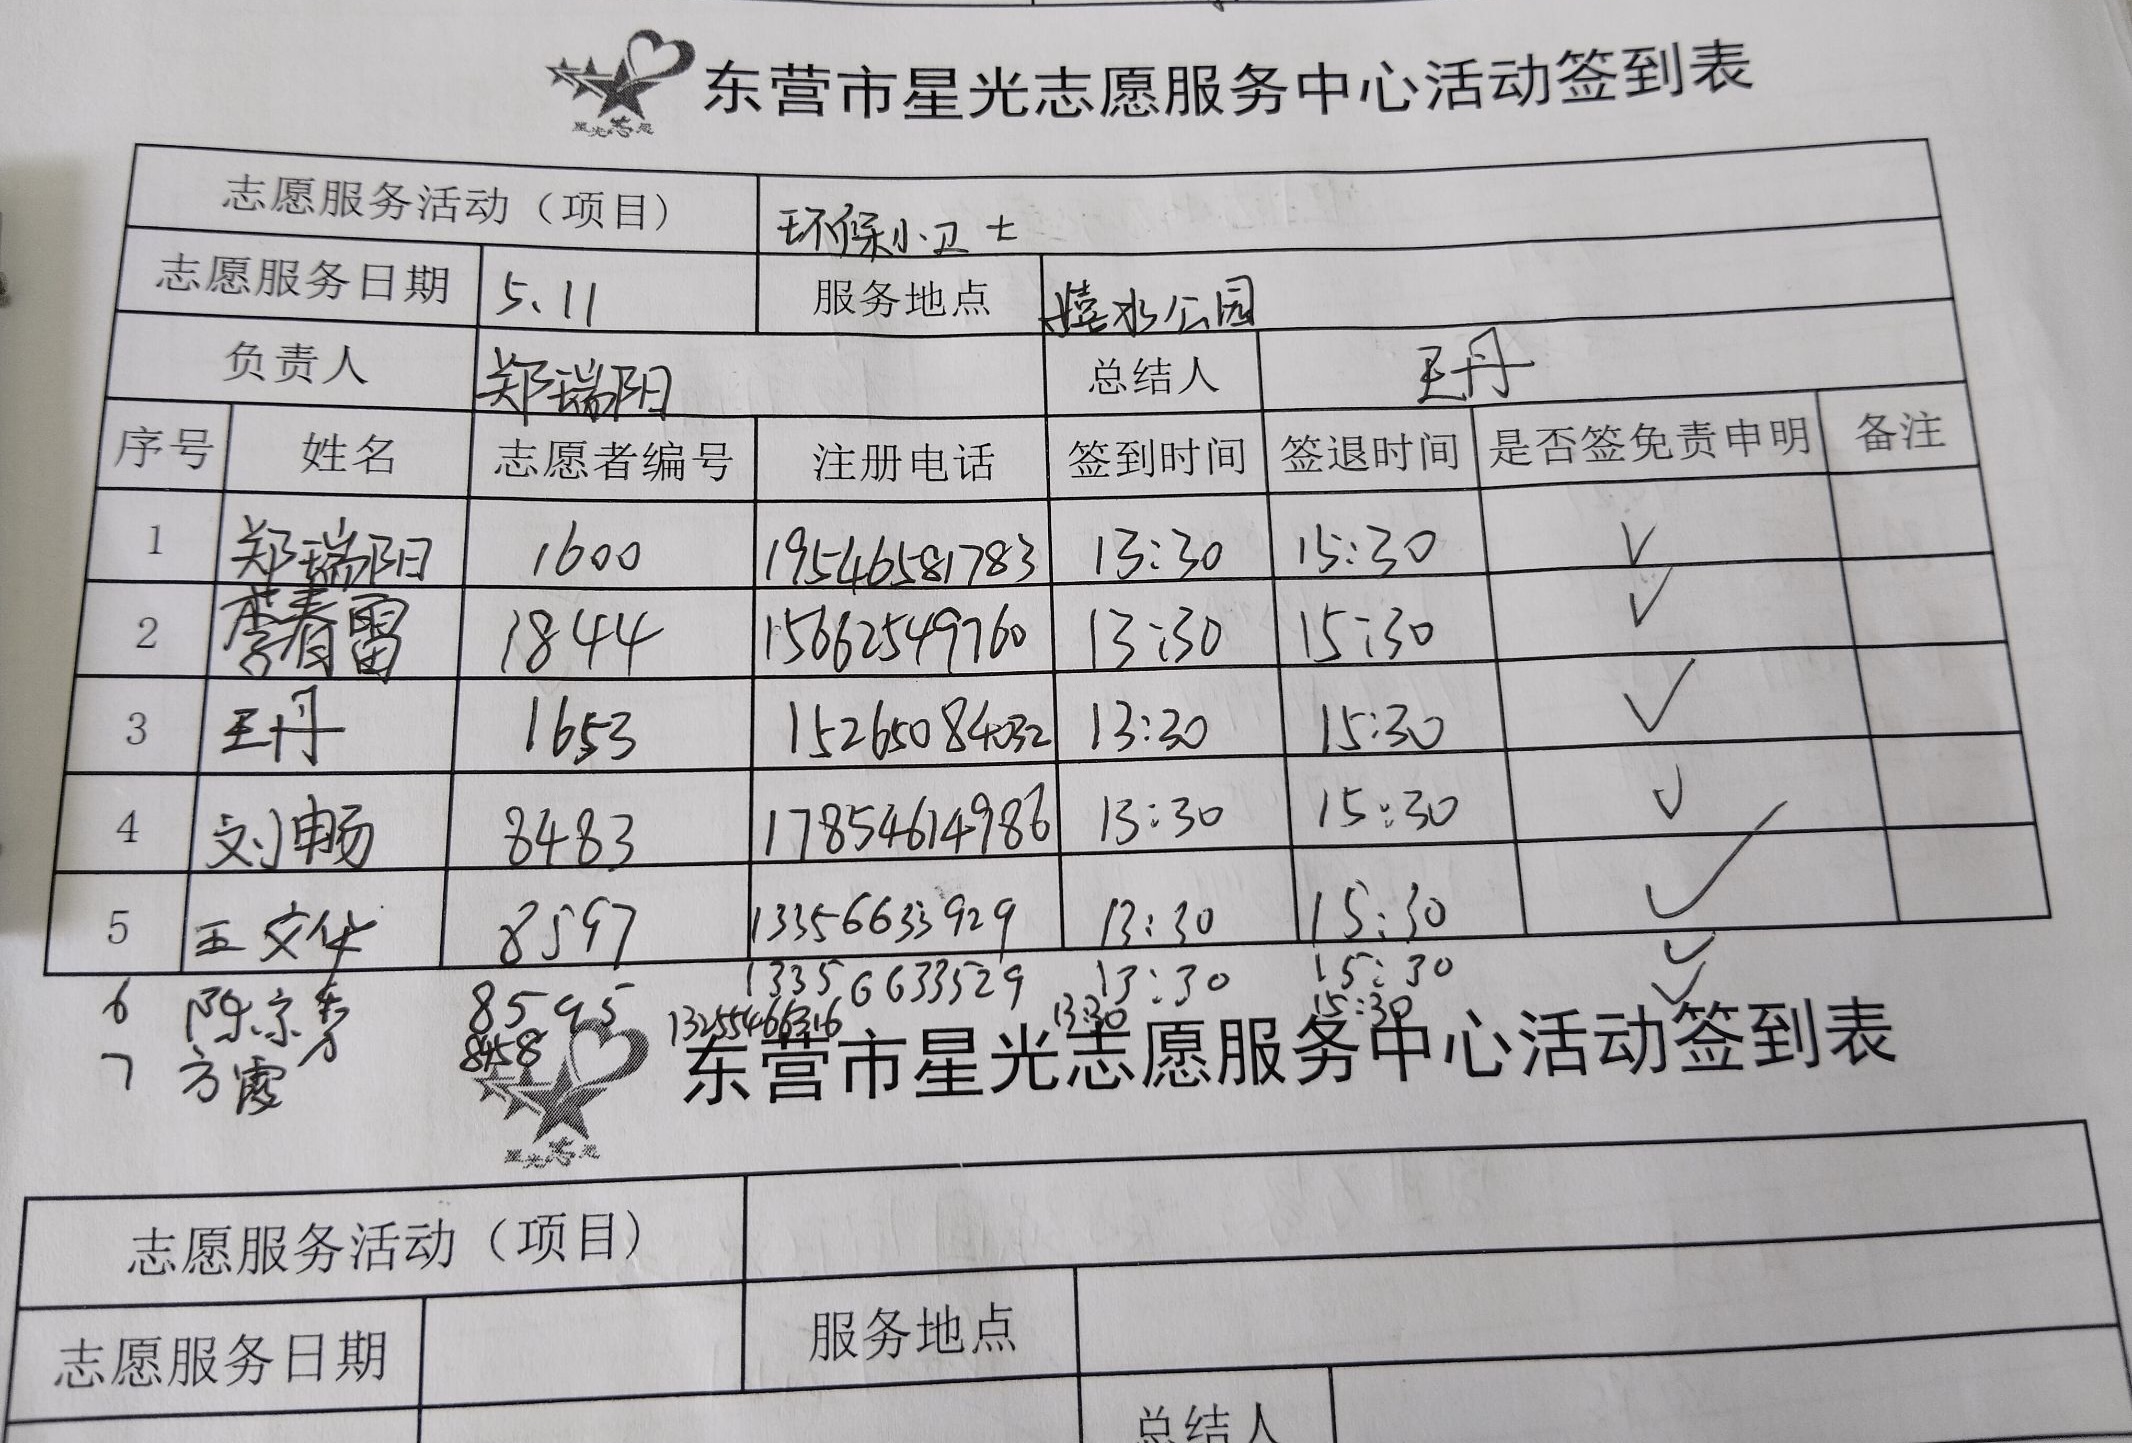 东营市星光志愿服务中心活动签到表
星光志愿
志愿服务活动（项目） 环保小卫士
志愿服务日期 5.11 服务地点 嬉水公园
负责人 郑瑞阳 总结人 王丹
序号 姓名 志愿者编号 注册电话 签到时间 签退时间 是否签免责申明 备注
1 郑瑞阳 1600 19546581783 13:30 15:30 ✓
2 李春雷 1844 15662549760 13:30 15:30 ✓
3 王丹 1653 15265084032 13:30 15:30 ✓
4 刘畅 8483 17854614986 13:30 15:30 ✓
5 王文华 8597 13356633929 13:30 15:30 ✓
6 陈京 8595 13356633529 13:30 15:30 ✓
7 方霞 8458 13255466316 13:30 15:30 ✓
东营市星光志愿服务中心活动签到表
星光志愿
志愿服务活动（项目）
志愿服务日期 服务地点
总结人